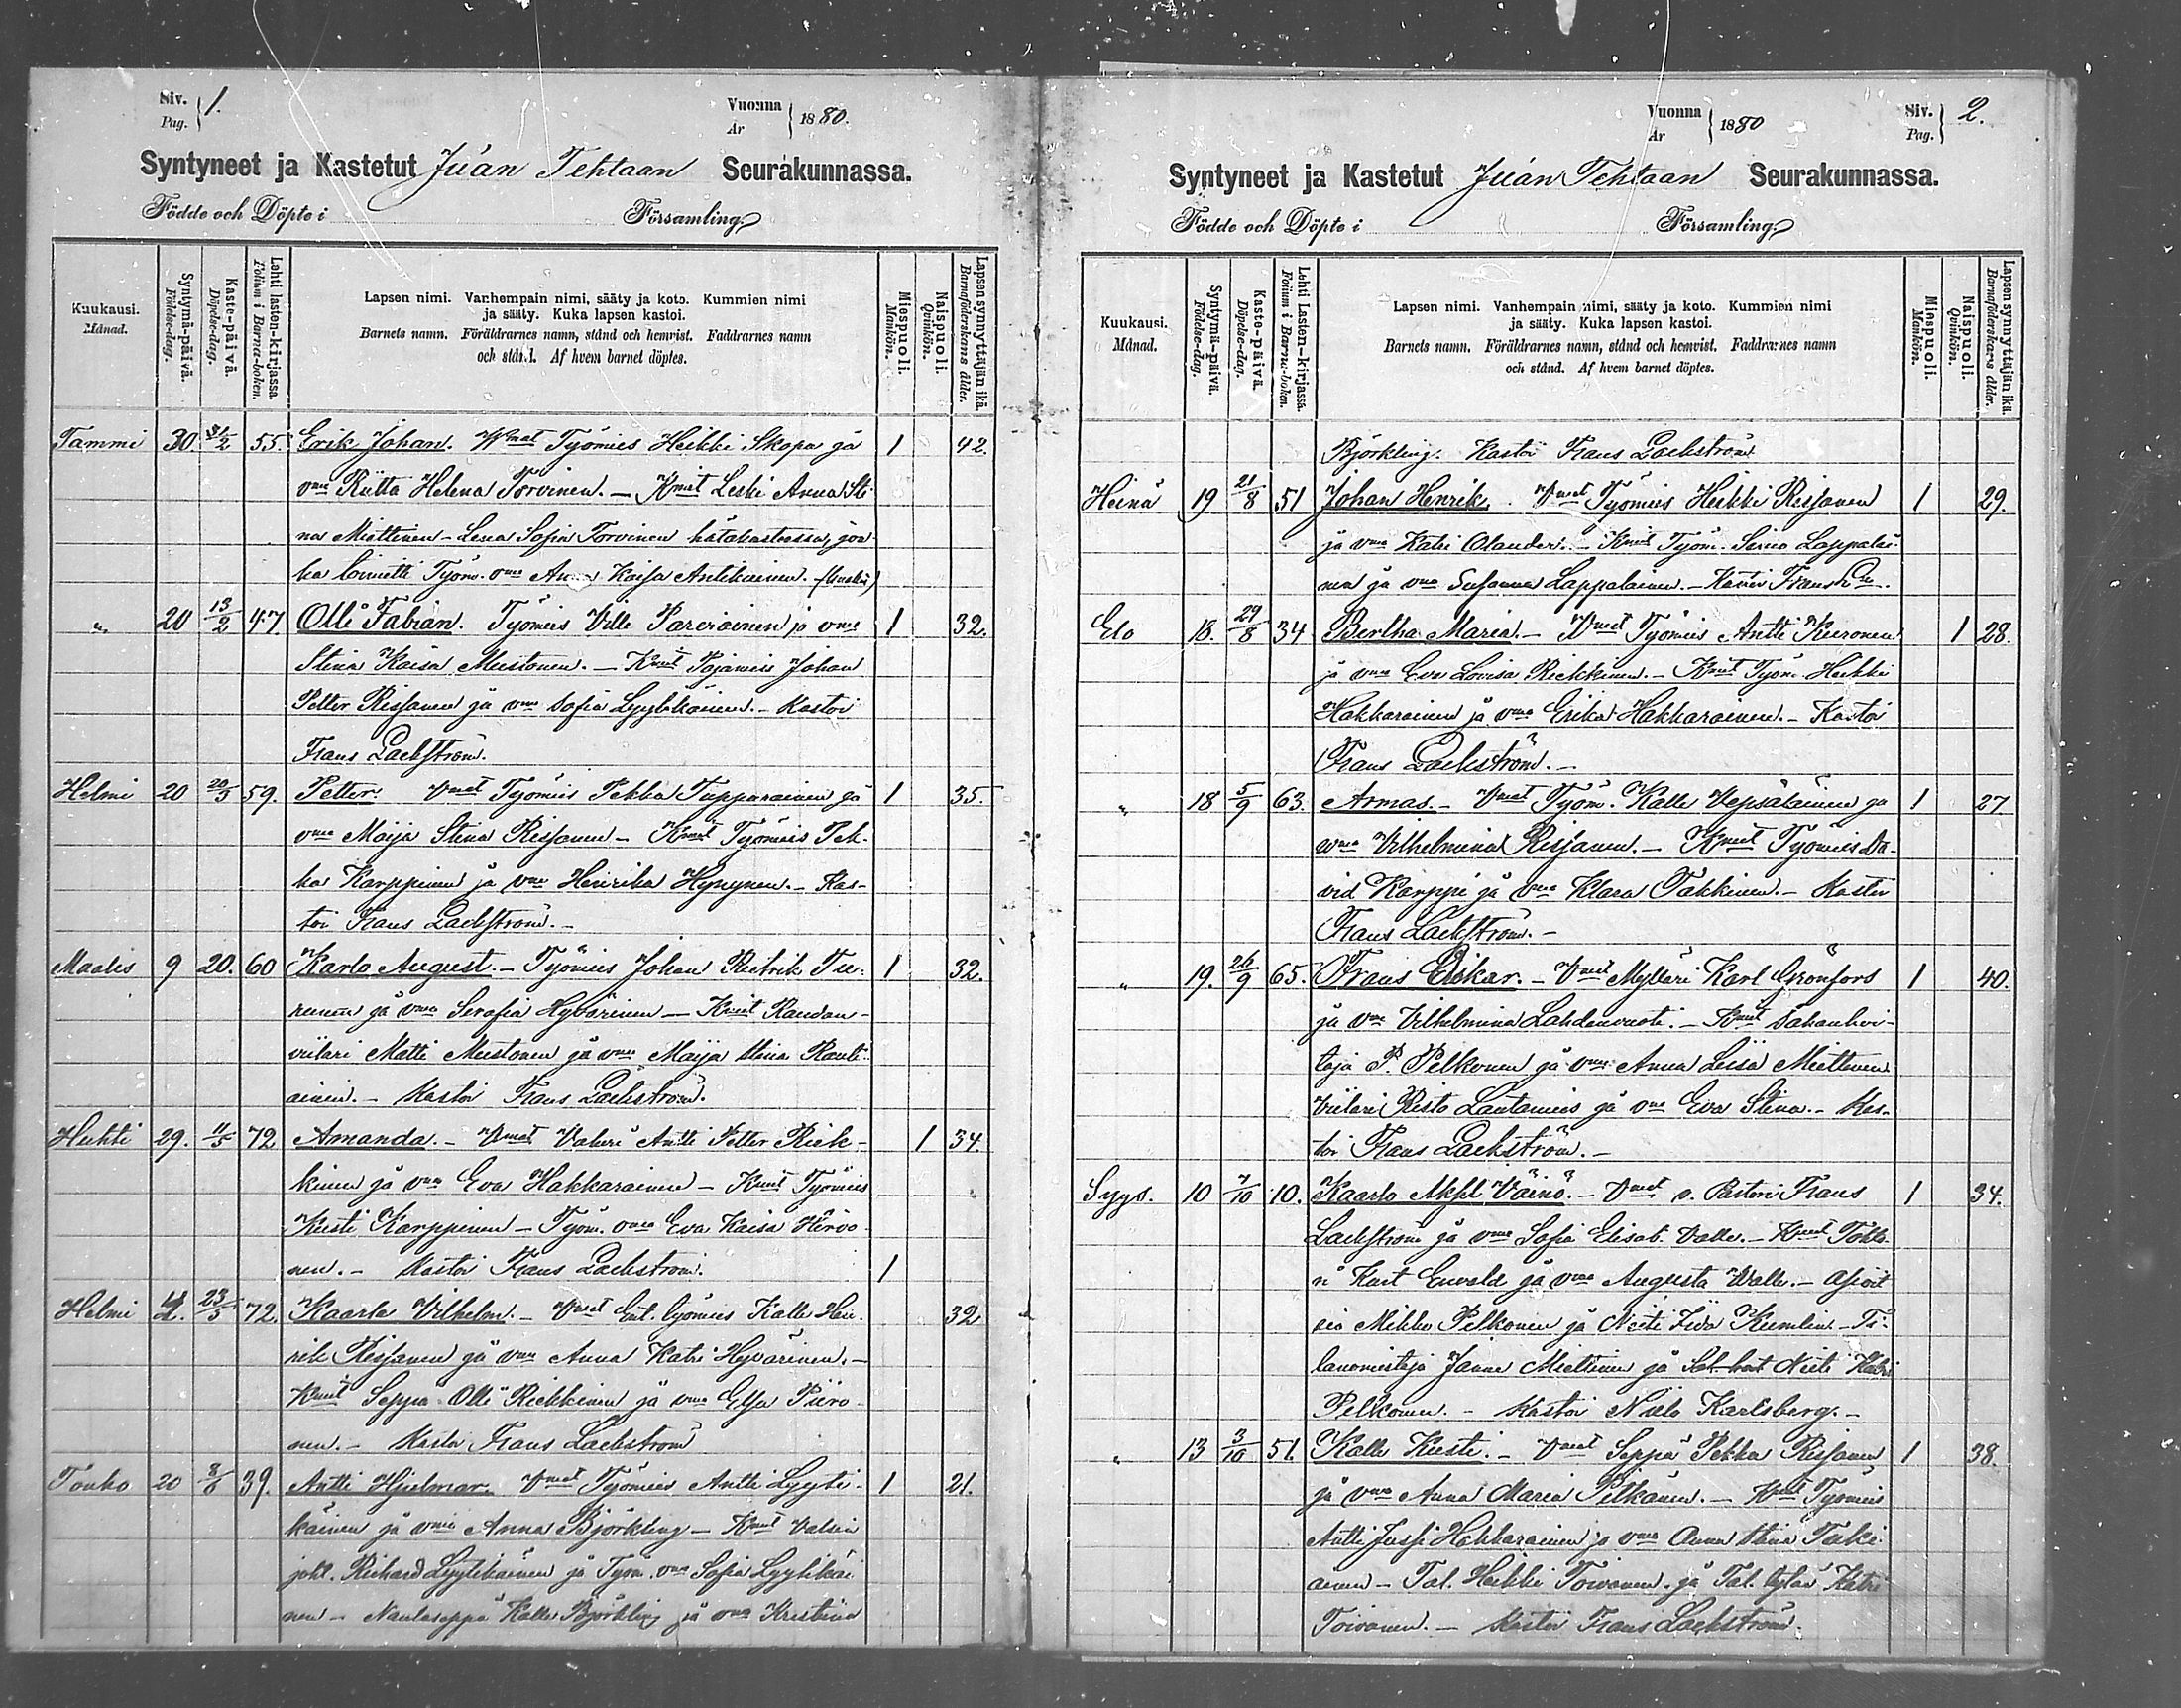 Siv.
Pag. 1.
Vuonna
År 1880.
Syntyneet ja Kastetut Juan Tehtaan Seurakunnassa.
Födde och Döpte i Församling
Kuukausi.
Månad.
Syntymä-päivä.
Födelse-dag.
Kaste-päivä.
Döpelse-dag.
Lehti lasten-kirjassa.
Folium i Barna-boken.
Lapsen nimi. Vanhempain nimi, sääty ja koto. Kummien nimi
ja sääty. Kuka lapsen kastoi.
Barnets namn. Föräldrarnes namn, stånd och hemvist. Faddrarnes namn
och stånd. Af hvem barnet döptes.
Miespuoli.
Mankön.
Naispuoli.
Qvinkön.
Lapsen synnyttäjän ikä.
Barnaföderskans ålder.
Tammi 30. 55. Erik Johan. Vmat Työmies Heikki Skopa ja 1 42.
vmo Riitta Helena Torvinen. – Kmit Leski Anna Sti-
na Miettinen – Lena Sofia Torvinen hätäkasteessa, jon-
ka toimitti Työm. vmo Kaisa Antikainen.
" 20 13/2 47. Olli Fabian. Työmies Ville Parviainen ja vmo 1 32.
Stina Kaisa Mustonen. – Kmit Pajamies Johan
Petter Rissanen ja vmo Sofia Lyytikäinen. – Kastoi
Frans Lackström.
Helmi 20 59. Petter. Vmat Työmies Pekka Tuppurainen ja 1 35.
vmo Maija Stina Rissanen – Kmit Työmies Pek-
ka Karppinen ja vmo Henrika Hynynen. – Kas-
toi Frans Lackström. –
Maalis 9 20. 60 Karlo August. – Työmies Johan Fredrik Tu- 1 32.
runen ja vmo Serafia Hyvärinen – Kmit Raudan-
viilari Matti Mustonen ja vmo Maija Stina Rauti-
ainen. – Kastoi Frans Lackström.
Huhti 29. 11/5 72 Amanda. – Vmat Valuri Antti Petter Riek- 1 34.
kinen ja vmo Eva Hakkarainen – Kmit Työmies
Kusti Karppinen – Työm. vmo Eva Kaisa Hirvo-
nen. – Kastoi Frans Lackström. 1
Helmi 23/5 72. Kaarlo Vilhelm. – Vmat Ent. työmies Kalle Hen- 32
rik Rissanen ja vmo Anna Katri Hyvärinen. –
Kmit Seppä Olli Riekkinen ja vmo Elsa Piiro-
nen. – Kastoi Frans Lackström
Touko 20 8/6 39. Antti Hjelmar. Vmat Työmies Antti Lyyti- 1 21.
käinen ja vmo Anna Björkling – Kmit Valssin
joht. Richard Lyytikäinen ja Työm. vmo Sofia Lyytikäi-
nen – Naulaseppä Kalle Björkling ja vmo Kristina
Vuonna
År 1880
Siv.
Pag. 2.
Syntyneet ja Kastetut Juan Tehtaan Seurakunnassa.
Födde och Döpte i Församling
Kuukausi.
Månad.
Syntymä-päivä.
Födelse-dag.
Kaste-päivä.
Döpelse-dag.
Lehti Lasten-kirjassa.
Folium i Barna-boken.
Lapsen nimi. Vanhempain nimi, sääty ja koto. Kummien nimi
ja sääty. Kuka lapsen kastoi.
Barnets namn. Föräldrarnes namn, stånd och hemvist. Faddrarnes namn
och stånd. Af hvem barnet döptes.
Miespuoli.
Mankön.
Naispuoli.
Qvinkön.
Lapsen synnyttäjän ikä.
Barnaföderskans ålder.
Björkling. Kastoi Frans Lackström
Heinä 19 21/8 51 Johan Henrik. Vmat Työmies Heikki Rissanen 1 29.
ja vmo Katri Olander. – Kmit Työm. Lappalai-
nen ja vmo Susanna Lappalainen. – Kastoi Frans
Elo 18. 29/8 34 Bertha Maria. – Vmat Työmies Antti Kuronen 1 28.
ja vmo Eva Lovisa Riekkinen. – Kmit Työm. Heikki
Hakkarainen ja vmo Erika Hakkarainen. – Kastoi
Frans Lackström. –
" 18 5/9 63. Armas. – Vmat Työm. Kalle Vepsäläinen ja 1 27
vmo Vilhelmina Rissanen. – Kmit Työmies Da-
vid Karppi ja vmo Klara Takkinen. – Kastoi
Frans Lackström. –
" 19. 26/9 65. Frans Oskar. – Vmat Mylläri Karl Grönfors 1 40.
ja vmo Vilhelmina Lahdenvuoti. – Kmit Sahanhoi-
taja P. Pelkonen ja vmo Anna Liisa Miettinen
Viilari Risto Lautamies ja vmo Eva Stina. – Kas-
toi Frans Lackström. –
Syys. 10 7/10 10. Kaarlo Aksel Väinö. – Vmat v. Pastori Frans 1 34.
Lackström ja vmo Sofia Elisab. Valle. – Kmit
Kust Envald ja vmo Augusta Valle. –
Mikko Pelkonen ja Neiti Iida Kumlin – Ti-
lanomistaja Janne Miettinen ja Neiti Katri
Pelkonen. – Kastoi Niilo Karlsberg. –
" 13 3/10 51. Kalle Kusti. – Vmat Seppä Pekka Rissanen 1 38.
ja vmo Anna Maria Pitkänen. – Kmit Työmies
Antti Jussi Hakkarainen ja vmo Anna Stina Taski-
ainen – Tal. Heikki Toivanen ja Tal. tytär Katri
Toivanen. – Kastoi Frans Lackström.